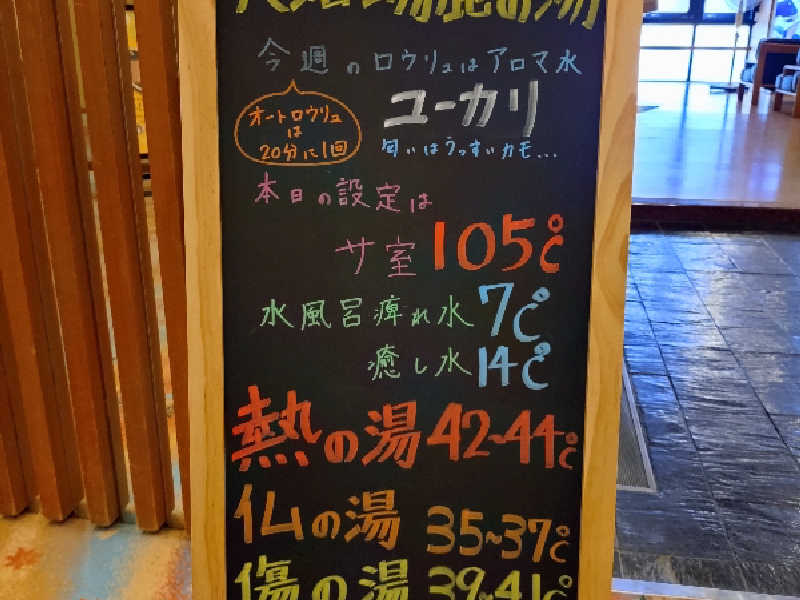 の湯
今週のロウリュはアロマ水
ユーカリ
オートロウリュ
は
20分に1回
匂いはうっすいカモ...
本日の設定は
サ室 105℃
水風呂 痺れ水 7℃
癒し水 14℃
熱の湯 42~44℃
仏の湯 35~37℃
傷の湯 39~41℃